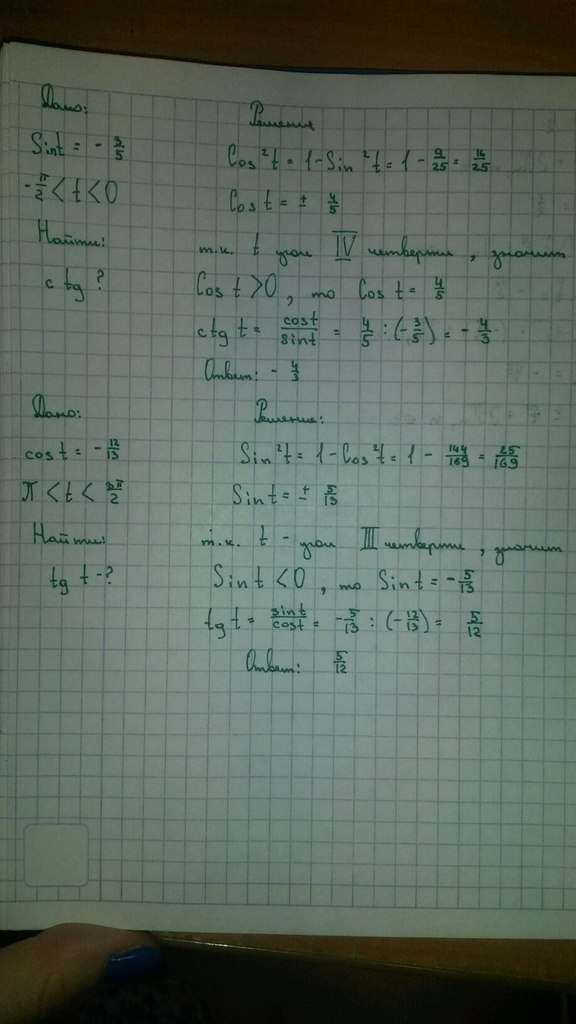 Дано:
Sin t = - 3/5
-π/2 < t < 0
Найти:
ctg ?
Решение
Cos²t = 1 - Sin²t = 1 - 9/25 = 16/25
Cos t = ± 4/5
т.к. t угол IV четверти, значит
Cos t > 0, то Cos t = 4/5
ctg t = cost/sint = 4/5 : (-3/5) = - 4/3
Ответ: - 4/3
Дано:
cos t = - 12/13
π < t < 3π/2
Найти:
tg t - ?
Решение:
Sin²t = 1 - Cos²t = 1 - 144/169 = 25/169
Sin t = ± 5/13
т.к. t - угол III четверти, значит
Sin t < 0, то Sin t = - 5/13
tg t = sint/cost = - 5/13 : (- 12/13) = 5/12
Ответ: 5/12